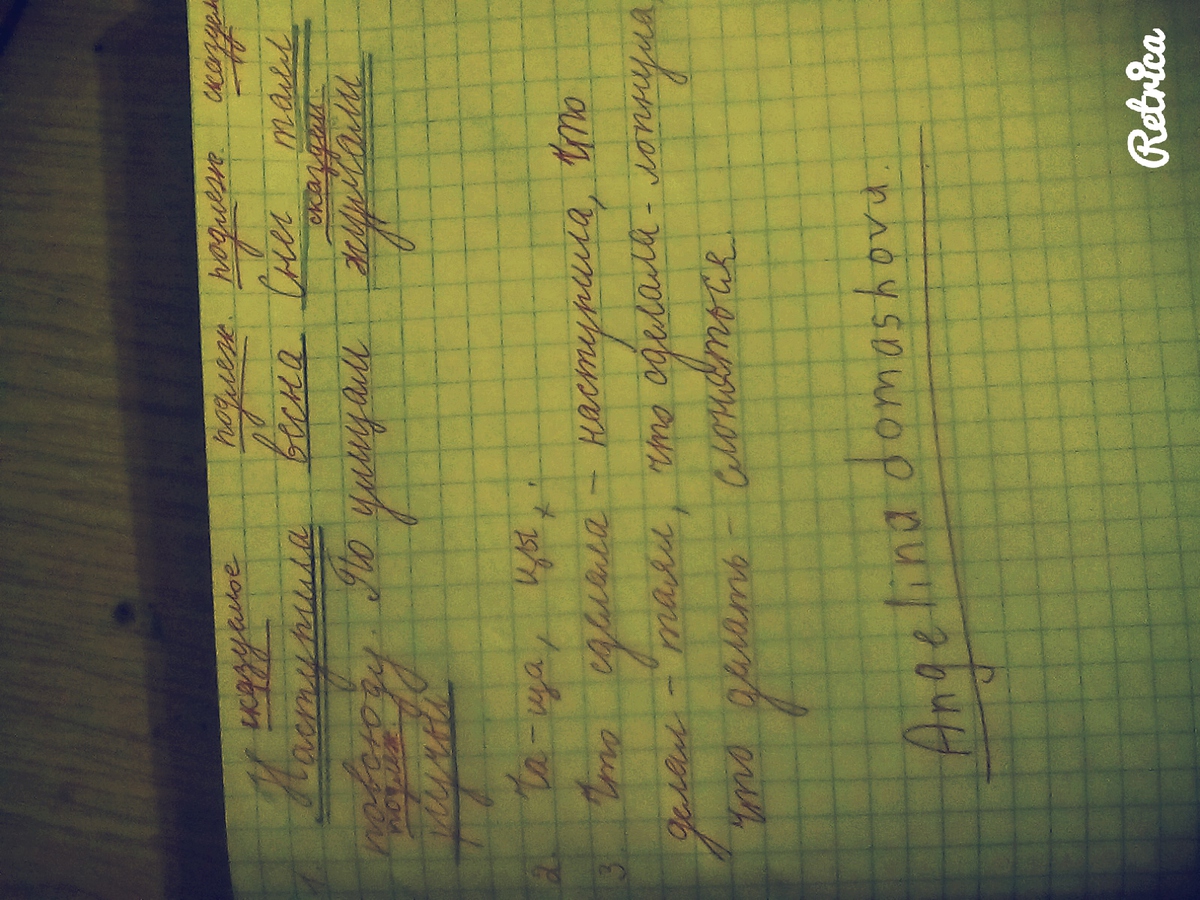 сказуемое подлеж. подлеж. сказуем
1. Наступила весна Снег таял
сказуем.
повсюду. По улицам журчали
подлеж
ручьи
2 Ча-ща, цы,
3 Что сделала - наступила, что
делал - таял, что сделала - лопнула,
что делать - слоняться.
Angelina domashova.
Retrica